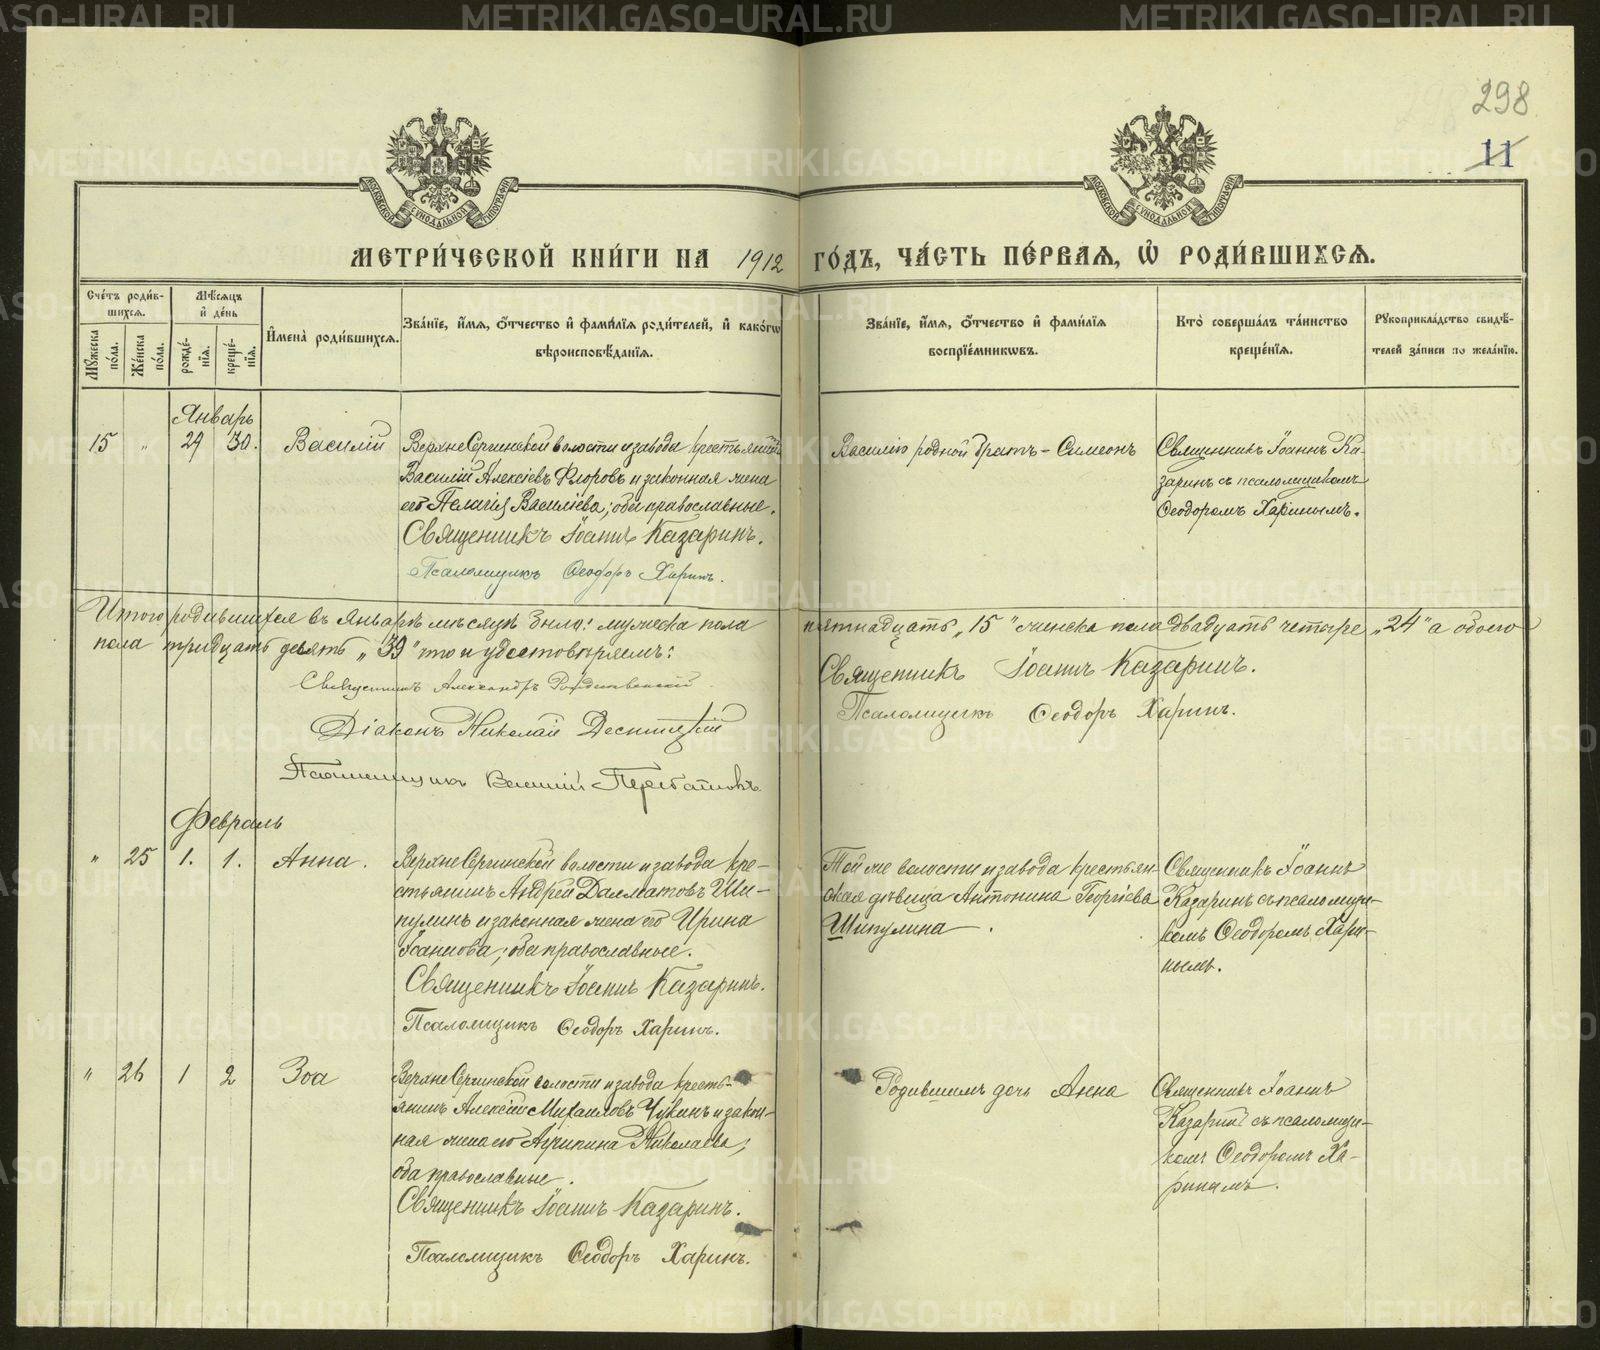 298
11
МОСКОВСКОЙ СѴНОДАЛЬНОЙ ТИПОГРАФІИ
МОСКОВСКОЙ СѴНОДАЛЬНОЙ ТИПОГРАФІИ
МЕТРИ́ЧЕСКОЙ КНИ́ГИ НА 1912 ГО́ДЪ, ЧА́СТЬ ПЕ́РВАѦ, Ѡ҆ РОДИ́ВШИХСѦ.
Сче́тъ роди́в-
шихсѧ.
Мꙋ́жеска по́ла.
Же́нска по́ла.
Мѣ́сѧцъ
и҆ де́нь
рожде́-
нїѧ.
креще́-
нїѧ.
И҆мена̀ роди́вшихсѧ.
Зва́нїе, и҆́мѧ, ѻ҆́тчество и҆ фами́лїѧ роди́телей, и҆ како́гѡ
вѣроисповѣ́данїѧ.
Зва́нїе, и҆́мѧ, ѻ҆́тчество и҆ фами́лїѧ
воспрїе́мникѡвъ.
Кто̀ соверша́лъ та́инство
креще́нїѧ.
Рꙋкоприкла́дство свидѣ́-
телей за́писи по жела́нїю.
Январь
15 " 29 30. Василій
ВерхнеСергинской волости и завода крестьянинъ
Василій Алексіевъ Флоровъ и законная жена
его Пелагія Василіева; оба православные.
Священникъ Іоаннъ Казаринъ.
Псаломщикъ Ѳеодоръ Харинъ.
Василію родной братъ - Симеонъ
Священникъ Іоаннъ Ка-
заринъ съ псаломщикомъ
Ѳеодоромъ Харинымъ.
Итого родившихся въ Январѣ мѣсяцѣ было: мужеска пола пятнадцать „15" женска пола двадцать четыре „24" а обоего
пола тридцать девять „39" что и удостовѣряемъ:
Священникъ Александръ
Діаконъ Николай Десницкій
Псаломщикъ
Священникъ Іоаннъ Казаринъ.
Псаломщикъ Ѳеодоръ Харинъ.
Февраль
" 25 1. 1. Анна.
ВерхнеСергинской волости и завода кре-
стьянинъ Андрей Далматовъ Ши-
пулинъ и законная жена его Ирина
Іоаннова; оба православные.
Священникъ Іоаннъ Казаринъ.
Псаломщикъ Ѳеодоръ Харинъ.
Той же волости и завода крестьян-
ская дѣвица Антонина Георгіева
Шипулина.
Священникъ Іоаннъ
Казаринъ съ псаломщи-
комъ Ѳеодоромъ Хари-
нымъ.
" 26 1 2 Зоа
ВерхнеСергинской волости и завода кресть-
янинъ Алексій Михаиловъ Чукинъ и закон-
ная жена его Агрипина Николаева;
оба православные.
Священникъ Іоаннъ Казаринъ.
Псаломщикъ Ѳеодоръ Харинъ.
Родившимъ дочь Анна
Священникъ Іоаннъ
Казаринъ съ псаломщи-
комъ Ѳеодоромъ Ха-
ринымъ.
METRIKI.GASO-URAL.RU